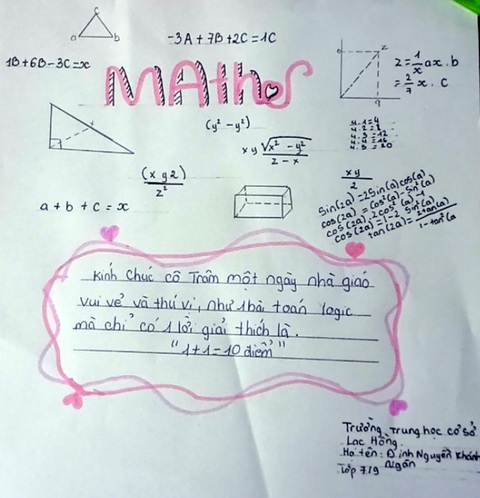 c
a b
-3A + 7B + 2C = 1C
1B + 6B - 3C = x
MAths
z
z = 1/x ax . b
= 2/7 x . c
(y² - y²)
xy √(x² - y²) / (z - x)
4.1=4
4.3=12
4.4=16
4.5=20
(xy2) / z²
xy / 2
a + b + c = x
sin(2a) = 2sin(a)cos(a)
cos(2a) = cos²(a) - sin²(a)
cos(2a) = 2cos²(a) - 1
cos(2a) = 1 - 2 sin²(a)
tan(2a) = 2tan(a) / 1 - tan²(a
Kính chúc cô Trâm một ngày nhà giáo
vui vẻ và thú vị, như 1 bài toán logic
mà chỉ có 1 lời giải thích là.
"1+1=10 điểm"
Trường Trung học cơ sở
Lạc Hồng
Họ tên: Đinh Nguyễn Khánh
Ngân
Lớp 7/9